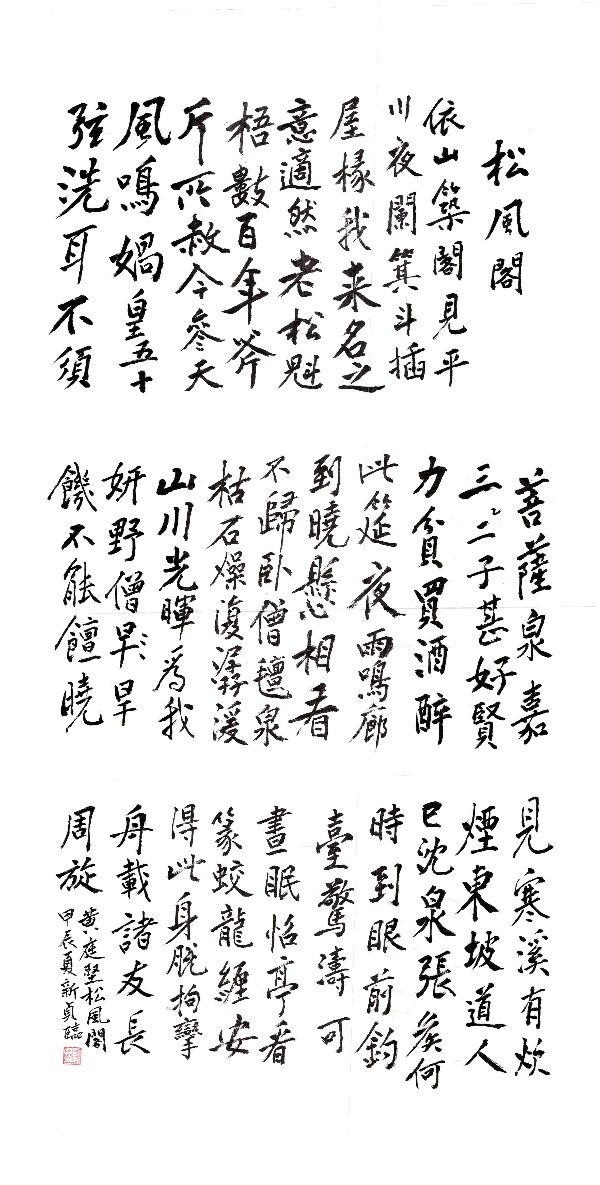 松風閣
依山築閣見平
川夜闌箕斗插
屋椽我来名之
意適然老松魁
梧數百年斧
斤所赦今參天
風鳴媧皇五十
弦洗耳不須
菩薩泉嘉
三二子甚好賢
力貧買酒醉
此筵夜雨鳴廊
到曉懸相看
不歸卧僧氈泉
枯石燥復潺湲
山川光暉為我
妍野僧早旱
饑不能饘曉
見寒溪有炊
煙東坡道人
已沈泉張矦何
時到眼前釣
臺驚濤可
晝眠怡亭看
篆蛟龍纏安
得此身脱拘攣
舟載諸友長
周旋
黄庭堅松風閣
甲辰夏新貞臨